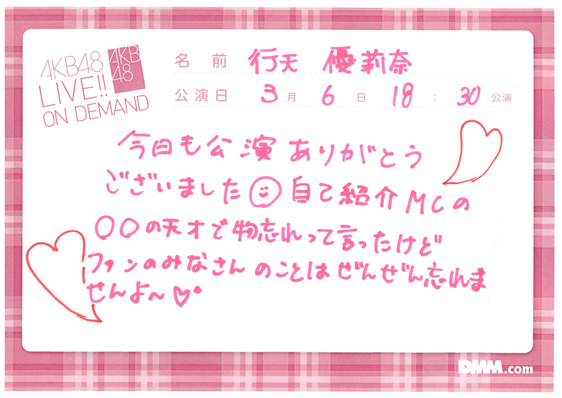 AKB48
LIVE!!
ON DEMAND
AKB
48
名前 行天 優莉奈
公演日 3月 6日 18:30公演
今日も公演ありがとう
ございました☺自己紹介MCの
〇〇の天才で物忘れって言ったけど
ファンのみなさんのことはぜんぜん忘れま
せんよ〜♡
DMM.com